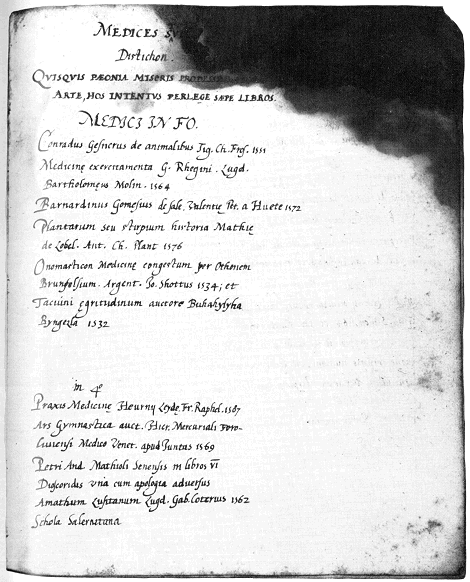 MEDICES
Distichon.
QVISQVIS PÆONIA MISERIS
ARTE, HOS INTENTVS PERLEGE SÆPE LIBROS.
MEDICI IN FO.
Conradus Gesnerus de animalibus Tig. Ch. Fros. 1551
Medicinę exercitamenta G. Rhegini. Lugd.
Bartholomeus Molin. 1564
Barnardinus Gomesius de sale, Valentię Pet. a Huete 1572
Plantarum seu stirpium historia Mathię
de Lobel. Ant. Ch. Plant 1576
Onomasticon Medicinę congestum per Othonem
Brunfelsium. Argent. Jo. Shottus 1534; et
Tacuini ęgritudinum auctore Buhahylyha
Byngezla 1532
in 4º
Praxis Medicinę Heurnij Leydę, Fr. Raphel. 1587
Ars Gymnastica auct. Hier. Mercuriali Foro-
Liviensi Medico Venet. apud Juntas 1569
Petri And. Mathioli Senensis in libros VI
Dioscoridis una cum apologia adversus
Amathum Lusitanum Lugd. Gab. Coterius 1562
Schola Salernitana